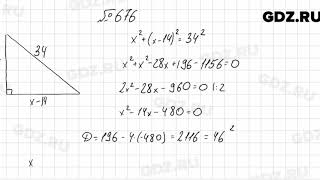 GDZ.RU
№676
34
x-14
x
x² + (x-14)² = 34²
x² + x² - 28x + 196 - 1156 = 0
2x² - 28x - 960 = 0 |:2
x² - 14x - 480 = 0
D = 196 - 4·(-480) = 2116 = 46²
GDZ.RU